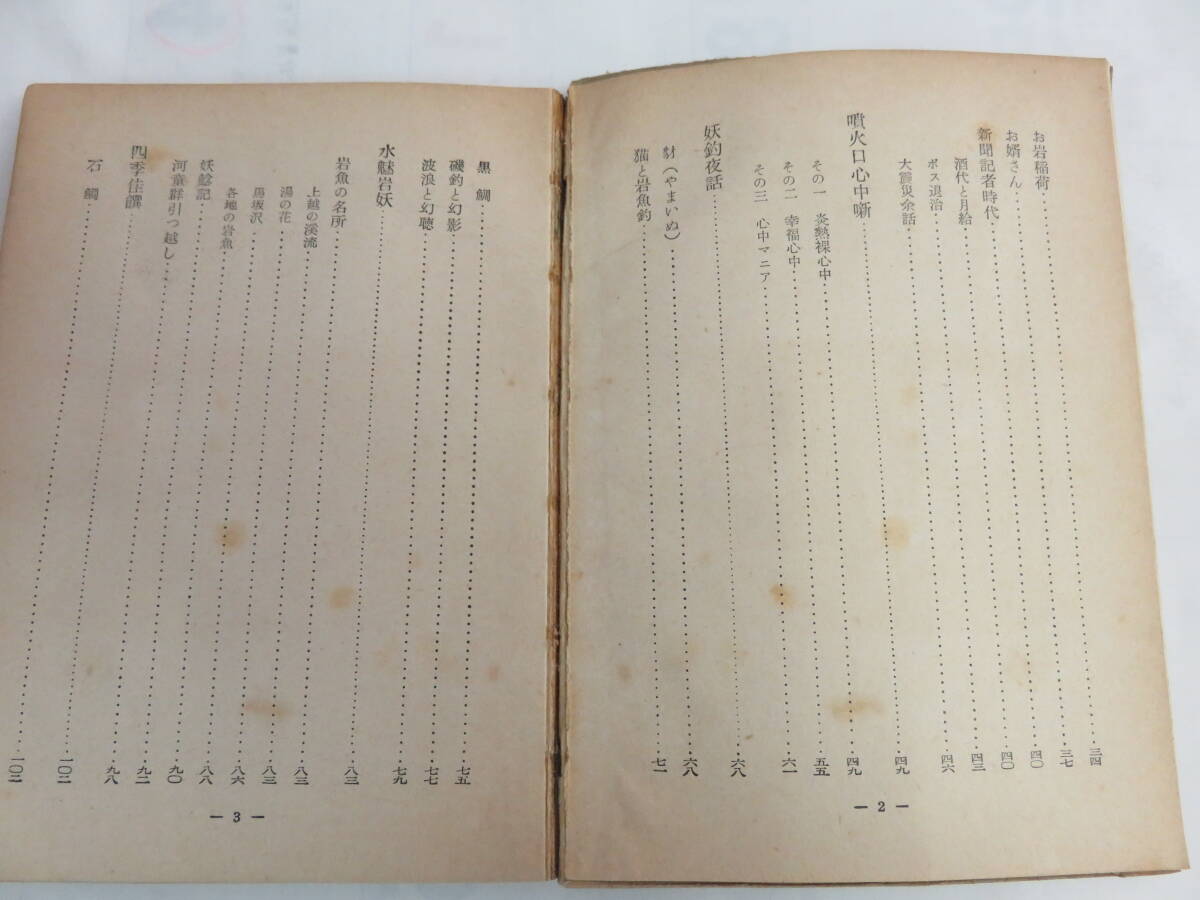 お岩稲荷……三四
お婿さん……三七
新聞記者時代……四〇
酒代と月給……四〇
ボス退治……四三
大震災余話……四六
噴火口心中噺……四九
その一　炎熱裸心中……四九
その二　幸福心中……五五
その三　心中マニア……六一
妖釣夜話……六八
豺（やまいぬ）……六八
猫と岩魚釣……七一
— 2 —
黒　鯛……七五
磯釣と幻影……七七
波浪と幻聴……七九
水魅岩妖……八三
岩魚の名所……八三
上越の渓流……八三
湯の花……八六
馬坂沢……八八
各地の岩魚……九〇
妖鯰記……九二
河童群引っ越し……九八
四季佳饌……一〇二
石　鯛……一〇二
— 3 —